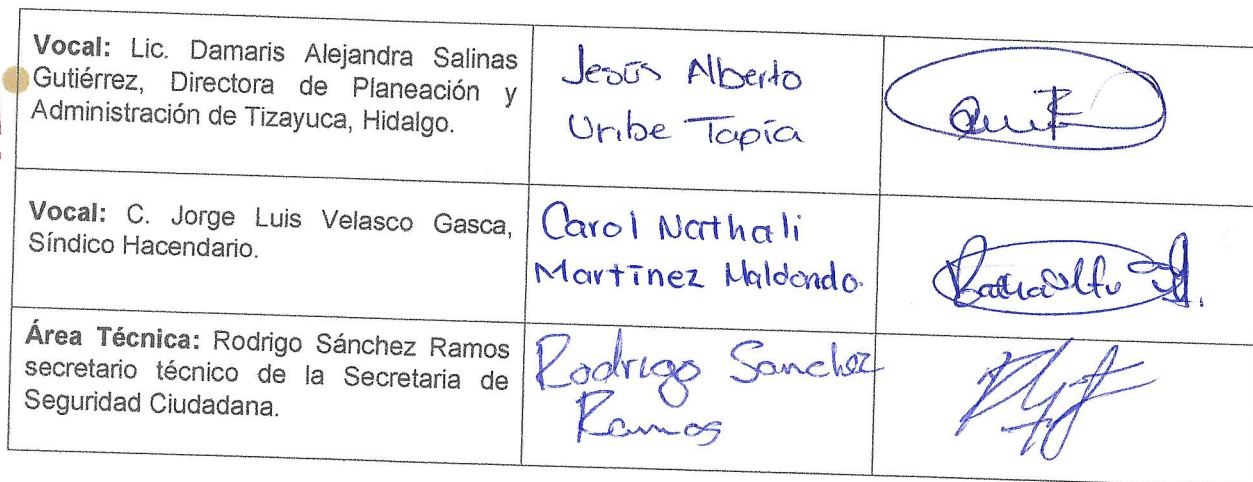 Vocal: Lic. Damaris Alejandra Salinas
Gutiérrez, Directora de Planeación y
Administración de Tizayuca, Hidalgo.
Jesús Alberto
Uribe Tapía
Vocal: C. Jorge Luis Velasco Gasca,
Síndico Hacendario.
Carol Nathali
Martínez Maldondo.
Área Técnica: Rodrigo Sánchez Ramos
secretario técnico de la Secretaria de
Seguridad Ciudadana.
Rodrigo Sanchez
Ramos